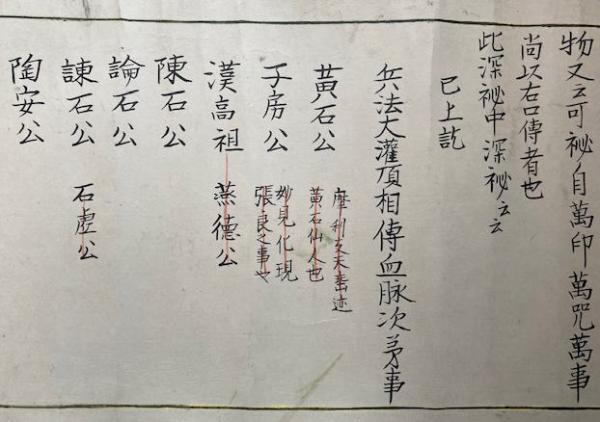 物又云可祕自萬印萬咒萬事
尚以右口傳者也
此深祕中深祕云云
已上訖
兵法大灌頂相傳血脉次苐事
黃石公
摩利支天垂迹
黃石仙人也
子房公
妙見化現
張良之事也
漢高祖 燕德公
陳石公
論石公
諫石公 石虛公
陶安公